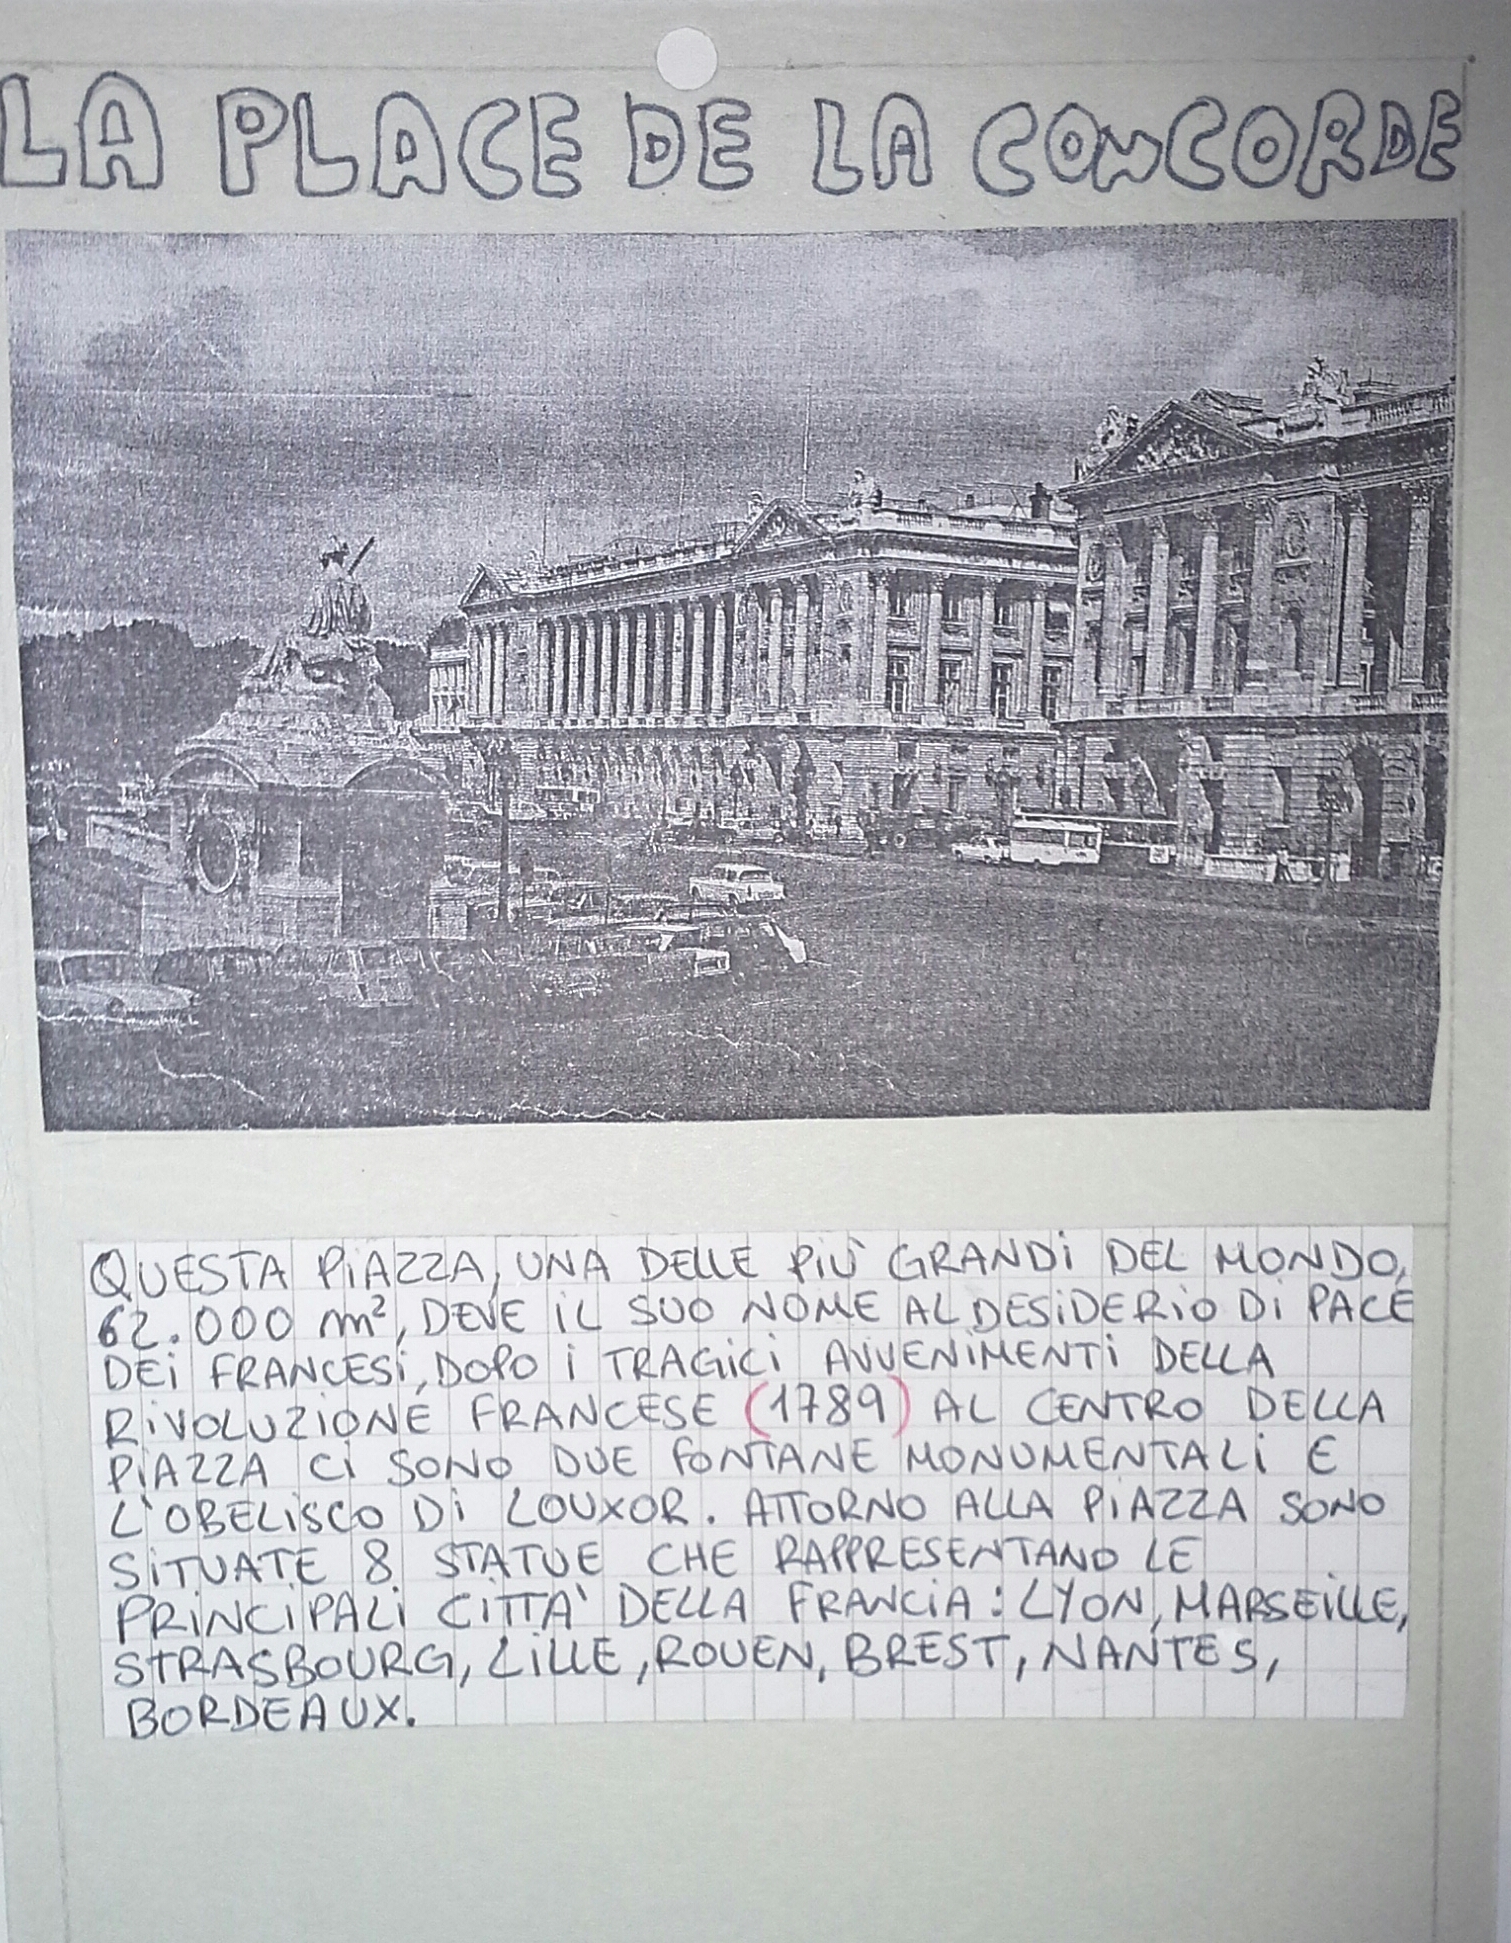 LA PLACE DE LA CONCORDE
QUESTA PIAZZA, UNA DELLE PIÙ GRANDI DEL MONDO,
62.000 m², DEVE IL SUO NOME AL DESIDERIO DI PACE
DEI FRANCESI, DOPO I TRAGICI AVVENIMENTI DELLA
RIVOLUZIONE FRANCESE (1789) AL CENTRO DELLA
PIAZZA CI SONO DUE FONTANE MONUMENTALI E
L'OBELISCO DI LOUXOR. ATTORNO ALLA PIAZZA SONO
SITUATE 8 STATUE CHE RAPPRESENTANO LE
PRINCIPALI CITTA' DELLA FRANCIA: LYON, MARSEILLE,
STRASBOURG, LILLE, ROUEN, BREST, NANTES,
BORDEAUX.